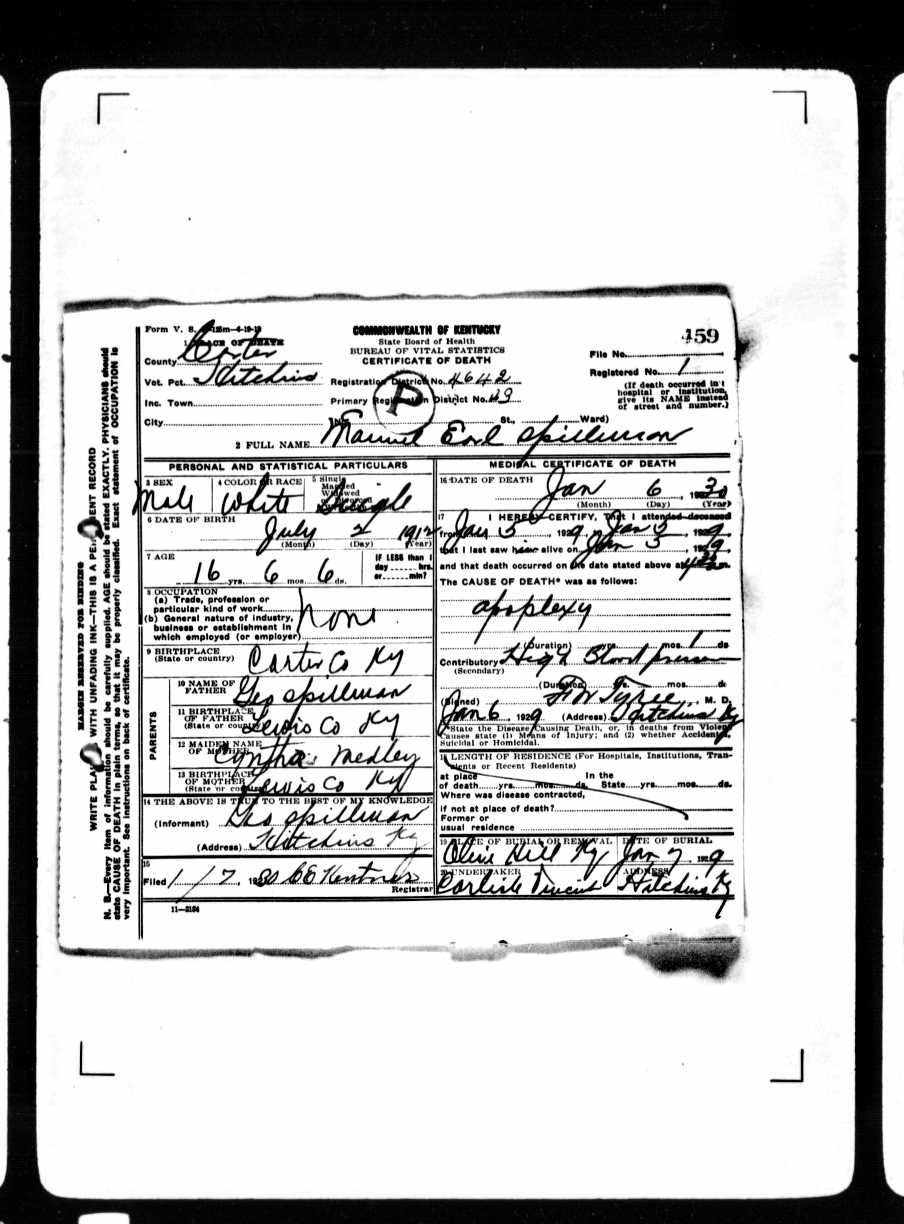 Form V. S. 1-125m-4-19-19
COMMONWEALTH OF KENTUCKY
State Board of Health
BUREAU OF VITAL STATISTICS
CERTIFICATE OF DEATH
459
File No.
Registered No. 1
(If death occurred in a hospital or institution, give its NAME instead of street and number.)
1 PLACE OF DEATH
County Carter
Vot. Pct. Hitchins
Inc. Town
City
Registration District No. 4642
Primary Registration District No.
P
St., Ward)
2 FULL NAME Earl Spillman
PERSONAL AND STATISTICAL PARTICULARS
3 SEX
Male
4 COLOR OR RACE
White
5 Single
Married
Widowed
or Divorced
Single
6 DATE OF BIRTH
July 2 1912
(Month) (Day) (Year)
7 AGE
16 yrs. 6 mos. 6 ds.
IF LESS than 1
day hrs.
or min?
8 OCCUPATION
(a) Trade, profession or
particular kind of work
(b) General nature of industry,
business or establishment in
which employed (or employer)
None
9 BIRTHPLACE
(State or country) Carter Co Ky
PARENTS
10 NAME OF
FATHER Geo Spillman
11 BIRTHPLACE
OF FATHER
(State or country) Lewis Co Ky
12 MAIDEN NAME
OF MOTHER Medley
13 BIRTHPLACE
OF MOTHER
(State or country) Lewis Co Ky
14 THE ABOVE IS TRUE TO THE BEST OF MY KNOWLEDGE
(Informant) Geo Spillman
(Address) Hitchins Ky
15
Filed 1/7, 1930
Registrar
11—3184
MEDICAL CERTIFICATE OF DEATH
16 DATE OF DEATH
Jan 6, 1930
(Month) (Day) (Year)
17 I HEREBY CERTIFY, That I attended deceased
from Jan 5 1929, to Jan 5 1929
that I last saw him alive on Jan 5, 1929,
and that death occurred on the date stated above at m.
The CAUSE OF DEATH* was as follows:
apoplexy
(Duration) yrs. mos. 1 ds
Contributory High Blood pressure
(Secondary)
(Duration) yrs. mos. ds
(Signed) Tyree M. D.
Jan 6, 1929 (Address) Hitchins Ky
*State the Disease Causing Death, or, in deaths from Violent
Causes state (1) Means of Injury; and (2) whether Accidental,
Suicidal or Homicidal.
18 LENGTH OF RESIDENCE (For Hospitals, Institutions, Tran-
sients or Recent Residents)
at place In the
of death yrs. mos. ds. State yrs. mos. ds.
Where was disease contracted,
if not at place of death?
Former or
usual residence
19 PLACE OF BURIAL OR REMOVAL
Olive Hill Ky
DATE OF BURIAL
Jan 7, 1929
20 UNDERTAKER
Carlisle Vincent
ADDRESS
Hitchins Ky
MARGIN RESERVED FOR BINDING
WRITE PLAINLY WITH UNFADING INK—THIS IS A PERMANENT RECORD
N. B.—Every item of information should be carefully supplied. AGE should be stated EXACTLY. PHYSICIANS should
state CAUSE OF DEATH in plain terms, so that it may be properly classified. Exact statement of OCCUPATION is
very important. See instructions on back of certificate.